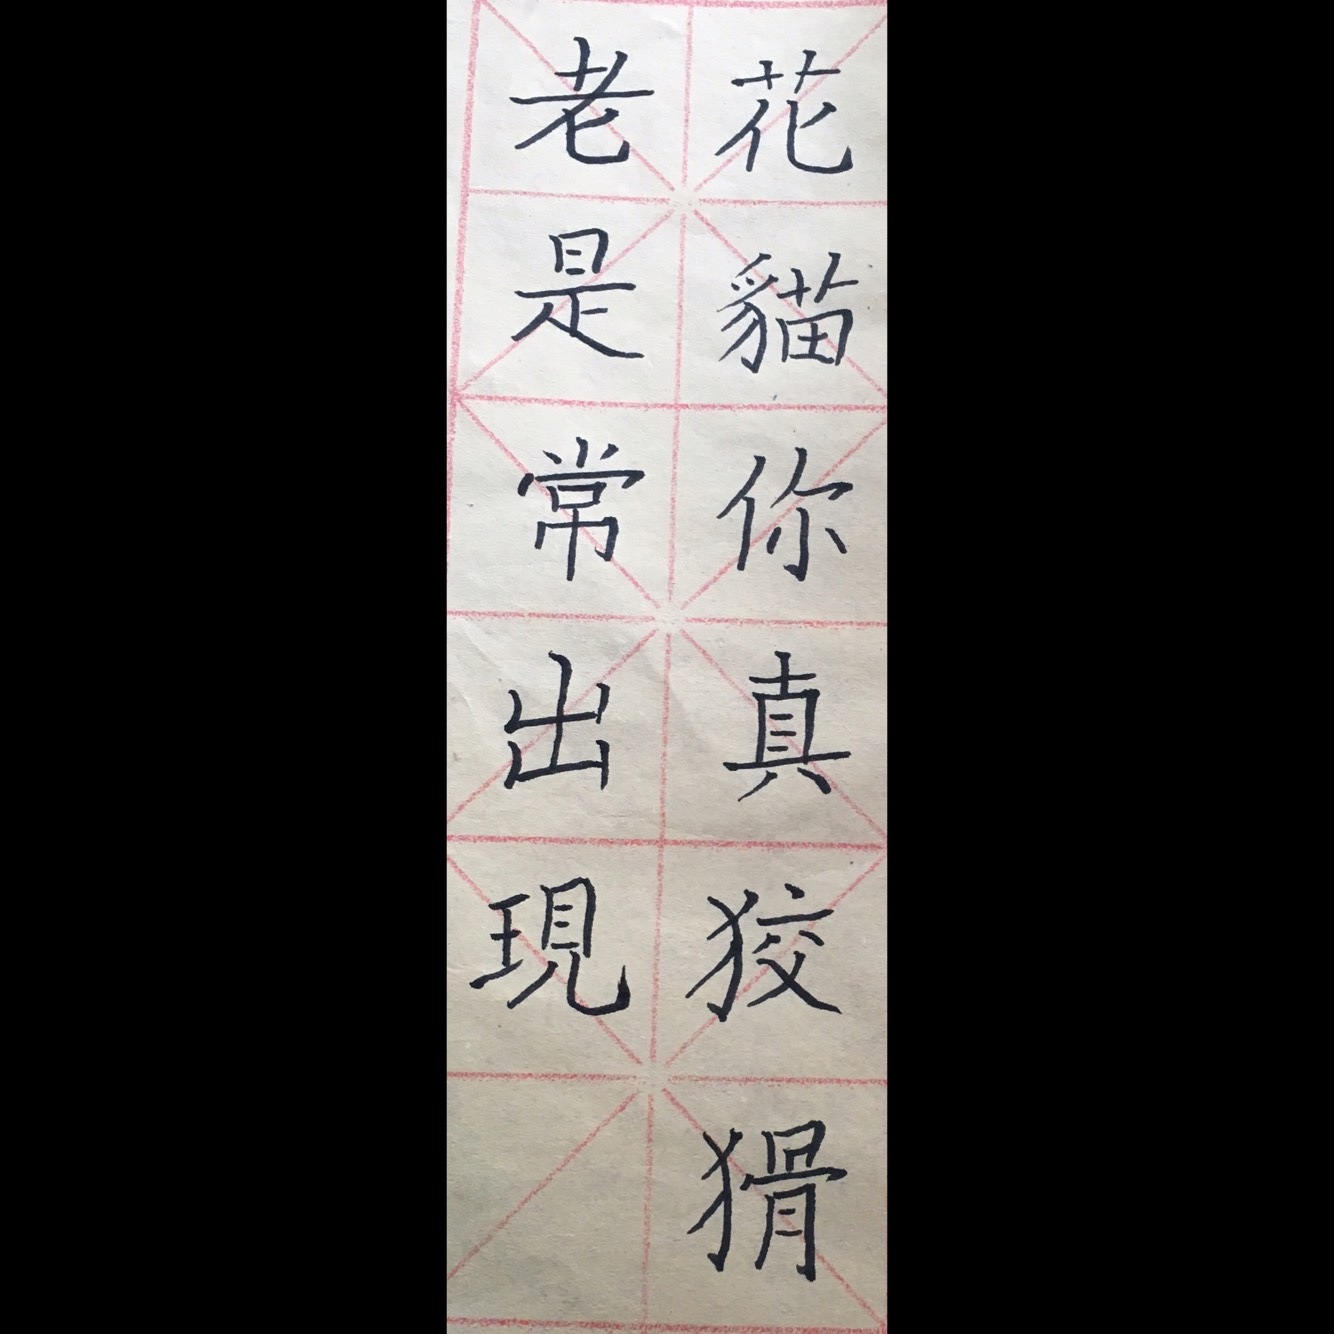 花貓你真狡猾
老是常出現